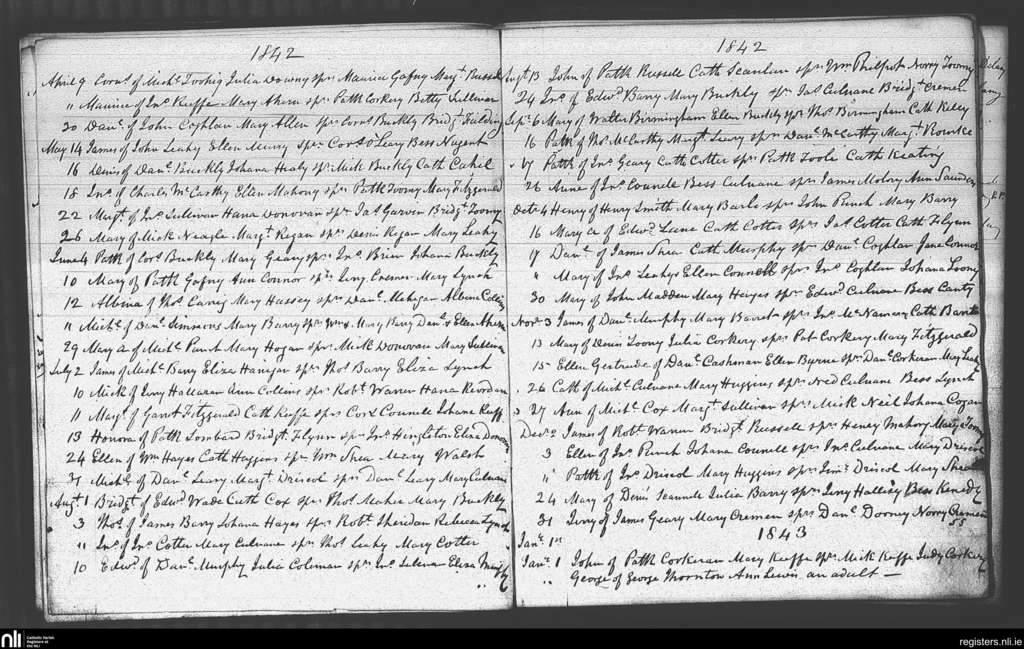 1842
April 9 Corns. of Michl. Toohig Julia Downy sprs Maurice Gafny Margt. Russell
" Maurice of Jno. Keeffe Mary Ahern sprs Patk Corkery Betty Sullivan
30 Danl. of John Coghlan Mary Allen sprs Corns Buckly Bridgt. Fielding
May 14 James of John Leahy Ellen Murry sprs Cors O'Leary Bess Nugent
16 Denis of Danl. Buckly Johana Healy sprs Mick Buckly Cath Cahil
18 Jno. of Charls McCarthy Ellen Mahony sprs Patk Toomy Mary Fitzgerald
22 Margt. of Jno. Sullivan Hana Donovan sprs Jas. Garven Bridgt. Toomy
26 Mary of Mick Neagle Margt. Regan sprs Denis Regan Mary Leahy
June 4 Patk of Cors. Buckly Mary Geary sprs Jno. Brien Johana Buckly
10 Mary of Patk Gafny Ann Connor sprs Jery Cremen Mary Lynch
12 Albina of Thos. Carey Mary Hassey sprs Danl. Mehegan Albina Collins
" Michl. of Danl. Simmons Mary Barry sprs Wm & Mary Barry Danl. & Ellen Ahern
29 Mary A of Michl. Punch Mary Hogan sprs Mick Donovan Mary Sullivan
July 2 James of Michl. Barry Eliza Hanigan sprs Thos. Barry Eliza Lynch
10 Mick of Jery Halloran Ann Collins sprs Robt. Warren Hana Reordan
11 Margt. of Garrt Fitzgerald Cath Keeffe sprs Cors Counele Johana Keeff
13 Honora of Patk Lombard Bridgt. Flynn sprs Jno. Hingleton Eliza
24 Ellen of Wm Hayes Cath Huggins sprs Wm Shea Mary Walsh
31 Michl. of Danl. Leary Margt. Driscol sprs Danl. Leary Mary Culnane
Augt. 1 Bridgt of Edwd. Wade Cath Cox sprs Thos. Meher Mary Buckley
3 Thos. of James Barry Johana Hayes sprs Robt. Sheridan Rebecca Lynch
" Jno. of Jno. Cotter Mary Culnane sprs Thos. Leahy Mary Cotter
10 Edwd. of Danl. Murphy Julia Coleman sprs Jno. Sullivan Eliza Murphy
1842
Augt 13 John of Patk Russell Cath Scanlan sprs Wm Philpot Norry Toomy
24 Jno. of Edwd. Barry Mary Buckly sprs Jas Culnane Bridgt. Cremen
Sept. 6 Mary of Walter Birmingham Ellen Buckly sprs Thos. Birmingham Cath Kelly
16 Patk of Ths McCarthy Margt. Leary sprs Danl. McCarthy Margt. Rourke
17 Patk of Jno. Geary Cath Cotter sprs Patk Toole Cath Keating
26 Anne of Jno. Counele Bess Culnane sprs James Molony Ann
Octr 4 Henry of Henry Smith Mary Barls sprs John Punch Mary Barry
16 Mary A of Edwd. Lane Cath Cotter sprs Jas. Cotter Cath Flynn
17 Danl. of James Shea Cath Murphy sprs Danl. Coghlan Jane Connor
" Mary of Jno. Leahys Ellen Connell sprs Jno. Coghlan Johana
30 Mary of John Madden Mary Hayes sprs Edwd Culnane Bess Canty
Novr 3 James of Danl. Murphy Mary Barrett sprs Jno. McNamery Cath
13 Mary of Denis Toomy Julia Corkery sprs Pat Corkery Mary Fitzgerald
15 Ellen Gertrude of Danl. Cashman Ellen Byrne sprs Danl. Corkeran Mary
26 Cath of Michl. Culnane Mary Huggins sprs Ned Culnane Bess Lynch
27 Ann of Michl. Cox Margt. Sullivan sprs Mick Neil Johana Cogan
Decr. 2 James of Robt. Warren Bridgt. Russell sprs Heney Mahony Mary Toomy
3 Ellen of Jno. Punch Johana Connell sprs Jno. Culnane Mary Driscol
" Patk of Jno. Driscol Mary Huggins sprs Jno. Driscol Mary Shea
24 Mary of Denis Scannele Julia Barry sprs Jery Hallisy Bess Kenedy
31 Jerry of James Geary Mary Cremen sprs Danl. Doorney Norry Cremen
55
1843
Jany. 1st
Jany. 1 John of Patk Corkeran Mary Keeffe sprs Mick Keeffe Judy Corkery
" George of George Thornton Ann Lewis an adult —
nli
Catholic Parish
Registers at
the NLI
registers.nli.ie